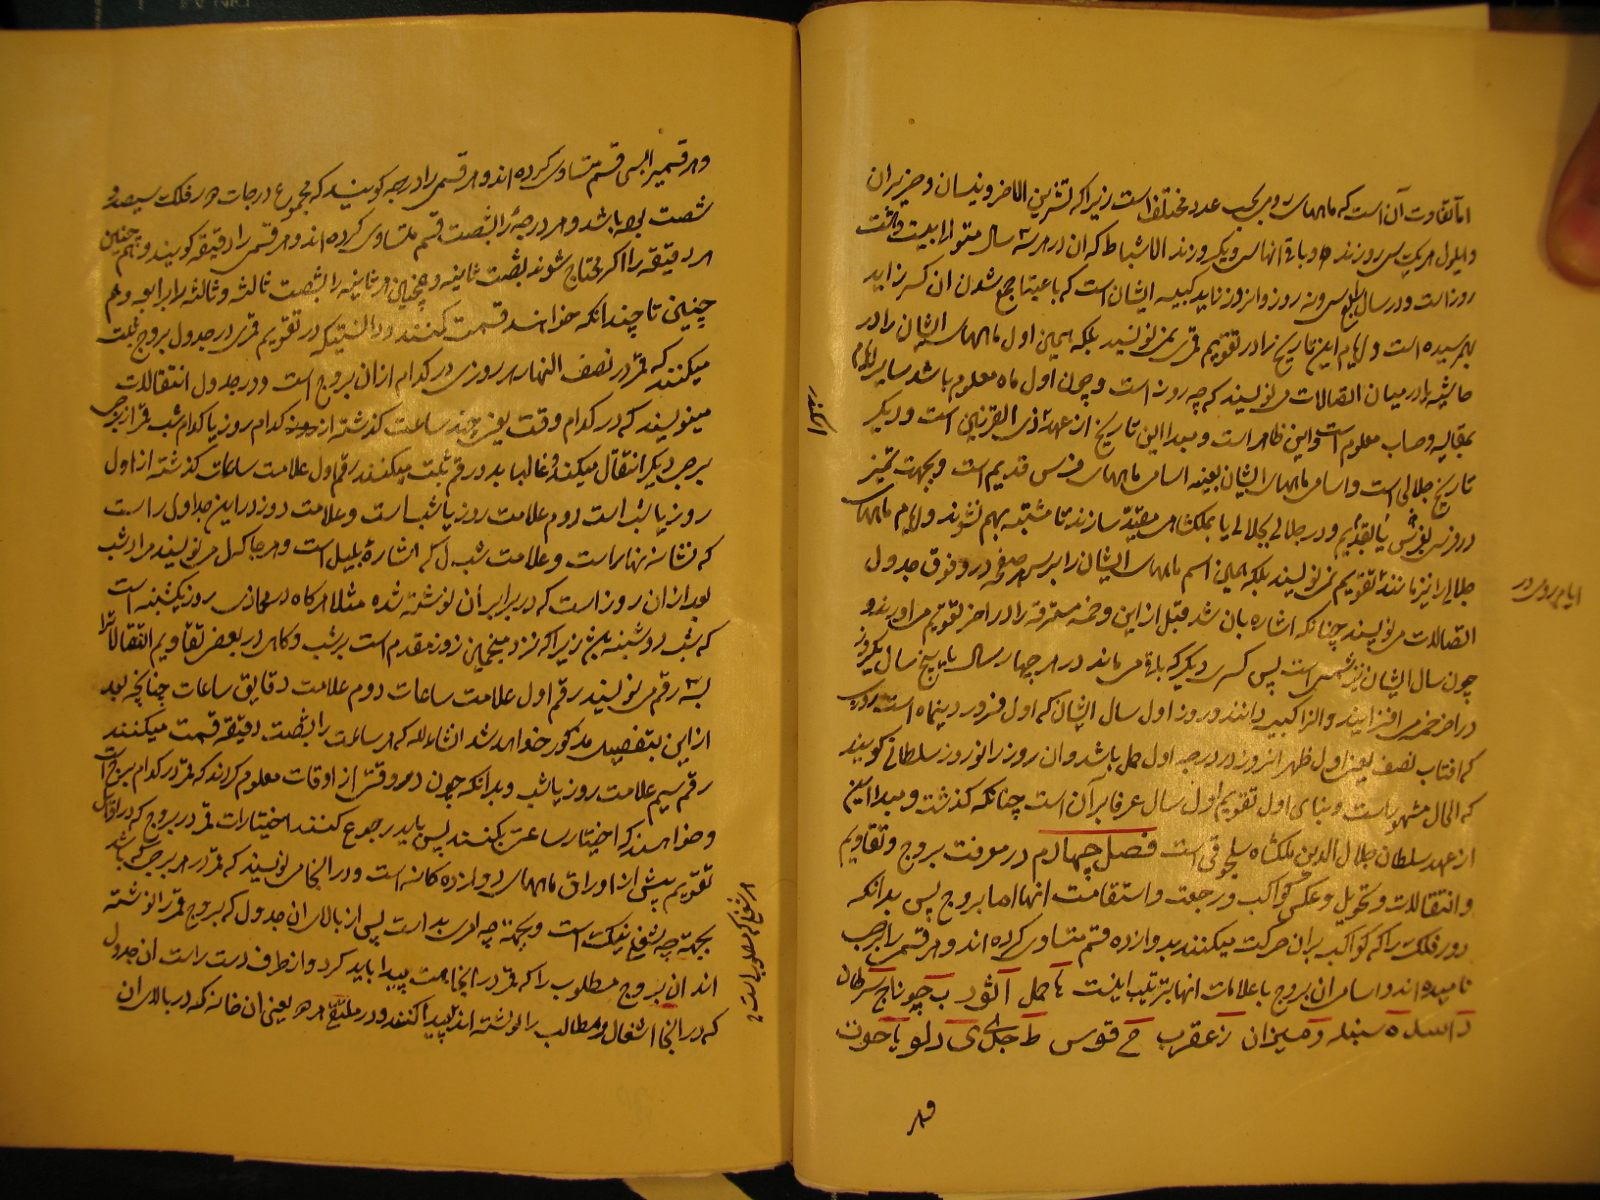 اما تفاوت آن است که ماههای رومی بحسب عدد مختلف است زیرا که تشرین الاخر و نیسان و حزیران
و ایلول هر یک سی روزند و باقی انها سی و یکروزند الا شباط که ان در هر سه سال متوالی بیست و هشت
روز است و در سال رابع بیست و نه روز و ان روز زاید کبیسه ایشان است که باعتبار جمع شدن ان کسر زاید
بهم رسیده است و ایام این تاریخ را در تقویم قمری نمینویسند بلکه همین اول ماههای ایشان را در
حاشیه یا در میان اتصالات مینویسند که چه روز است و چون اول ماه معلوم باشد سایر ایام
بمقایسه و حساب معلوم است و این ظاهر است و مبدا این تاریخ از عهد ذی القرنین است و دیگر
اسکندر
تاریخ جلالی است و اسامی ماههای ایشان بعینه اسامی ماههای فرس قدیم است و بجهت تمیز
در فرس بفرس یا القدیم و در جلالی بجلالی یا بملکشاهی مقید سازند تا مشتبه بهم نشوند و ایام ماههای
جلالی را نیز مانند تقویم نمینویسند بلکه همین اسم ماههای ایشان را بر سر صفحه در فوق جدول
اتصالات مینویسند چنانکه اشاره بان شد قبل از این و خمسه مسترقه را در اخر تقویم میاورند و
چون سال ایشان نیز شمسی است پس کسری دیگر که باقی میماند در هر چهار سال یا پنج سال یکروز
در اخر خمسه میافزایند و انرا کبیسه دانند و روز اول سال ایشان که اول فروردینماه است روزیست
که افتاب نصف یعنی اول ظهر انروز در درجه اول حمل باشد و ان روز را نوروز سلطانی گویند
که الحال مشهور است و بنای اول تقویم و اول سال عرفا بر آن است چنانکه گذشت و مبدا این
از عهد سلطان جلال الدین ملکشاه سلجوقی است فصل چهارم در معرفت بروج و تقاویم
و انتقالات و تحویل و عکس کواکب و رجعت و استقامت انها اما بروج پس بدانکه
دور فلک را که کواکب بران حرکت میکنند بدوازده قسم متساوی کرده اند و هر قسمی را برجی
نامیده اند و اسامی ان بروج با علامات انها بترتیب اینست حمل ا ثور ب جوزا ج سرطان
د اسد ه سنبله و میزان ز عقرب ح قوس ط جدی ی دلو یا حوت
و هر
و هر قسمی را بسی قسم متساوی کرده اند و هر قسمی را درجه گویند که مجموع درجات هر فلک سیصد و
شصت بوده باشد و هر درجه را بشصت قسم متساوی کرده اند و هر قسمی را دقیقه گویند و همچنین
هر دقیقه را اگر محتاج شوند بشصت ثانیه و همچنین هر ثانیه را بشصت ثالثه و ثالثه را برابعه و هم
چنین تا چندانکه خواهند قسمت کنند و دانستیکه در تقویم قمری در جدول بروج ثبت
میکنند که قمر در نصف النهار هر روزی در کدام از ان بروج است و در جدول انتقالات
مینویسند که در کدام وقت یعنی چند ساعت گذشته از کدام روز یا کدام شب قمر از برجی
ببرجی دیگر انتقال میکند و غالبا بدو رقم ثبت میکنند رقم اول علامت ساعات گذشته از اول
روز یا شب است دوم علامت روز یا شب است و علامت روز در این جداول را است
که نشانه نهار است و علامت شب ل که اشاره بلیل است و هر جا که ل مینویسند مراد شب
بعد از ان روز است که در برابر ان نوشته شده مثلا هر گاه در محاذی روز یکشنبه است
که شب دوشنبه زیرا که نزد منجمین روز مقدم است بر شب و گاهی در بعض تقاویم انتقالات را
بسه رقم مینویسند رقم اول علامت ساعات دوم علامت دقایق ساعات چنانچه بعد
ازاین بتفصیل مذکور خواهد شد انشاء الله که هر ساعت را بشصت دقیقه قسمت میکنند
رقم سیم علامت روز یا شب و بدانکه چون در هر وقتی از اوقات معلوم کردند که قمر در کدام برج است
و خواهند که اختیار ساعتی بکنند پس باید رجوع کنند اختیارات قمر در بروج که در اوایل
تقویم پیش از اوراق ماههای دوازده گانه است و در انجا مینویسند که قمر در هر برجی که باشد
بجهة چه شغل نیک است و بجهة چه امری بد است پس از بالای ان جدول که بروج قمر را نوشته
اند ان بروج مطلوب را که قمر در انجاست پیدا باید کرد و از طرف دست راست ان جدول
که در انجا اشغال و مطالب را نوشته اند پیدا کنند و در ملتقی هر یعنی ان خانه که در بالای ان
هر شغلی که مطلوب است